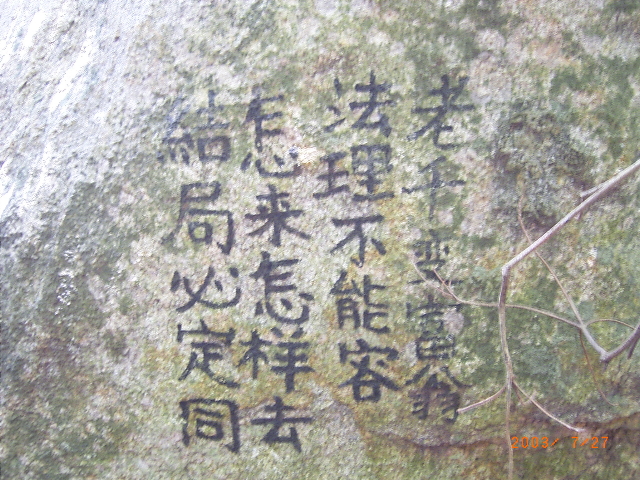 老千变富翁
法理不能容
怎来怎样去
結局必定同